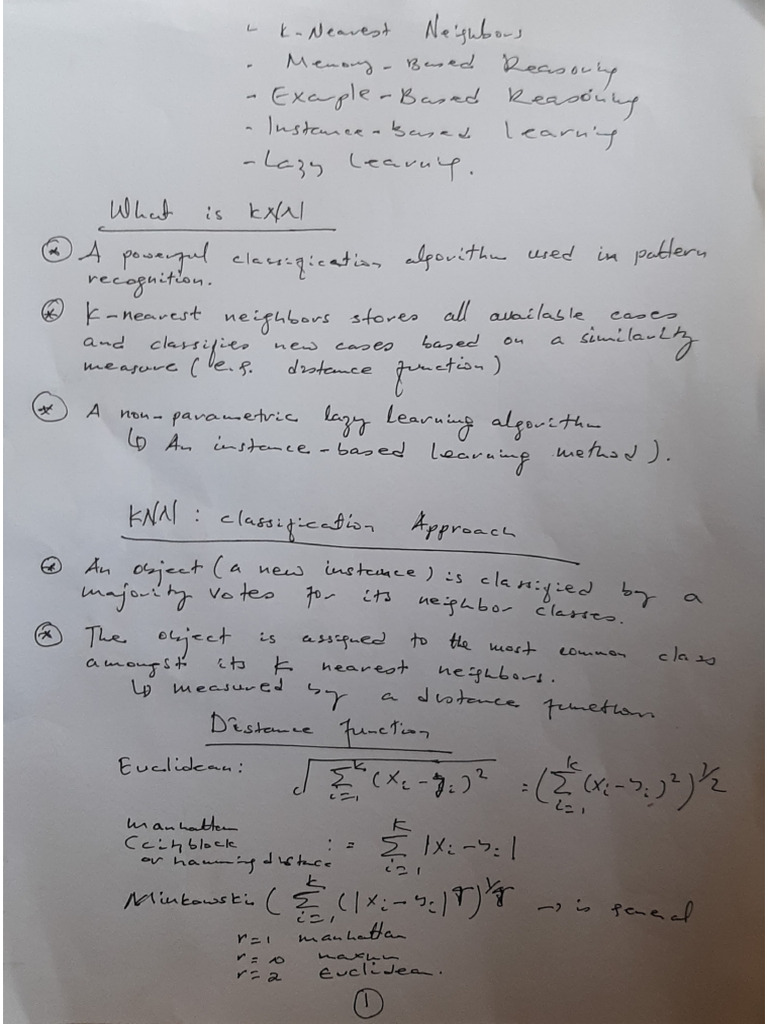 - K-Nearest Neighbors
- Memory-Based Reasoning
- Example-Based Reasoning
- Instance-based learning
- Lazy Learning.
What is KNN
* A powerful classification algorithm used in pattern
recognition.
* K-nearest neighbors stores all available cases
and classifies new cases based on a similarity
measure (e.g. distance function)
* A non-parametric lazy learning algorithm
↳ An instance-based learning method).
KNN: classification Approach
* An object (a new instance) is classified by a
majority votes for its neighbor classes.
* The object is assigned to the most common class
amongst its K nearest neighbors.
↳ measured by a distance function
Distance function
Euclidean: √(∑_{i=1}^{k} (x_i - y_i)^2) = (∑_{i=1}^{k} (x_i - y_i)^2)^{1/2}
Manhattan
(city block
or hamming distance := ∑_{i=1}^{k} |x_i - y_i|
Minkowski (∑_{i=1}^{k} (|x_i - y_i|^r))^{1/r} → is general
r=1 manhattan
r=∞
r=2 Euclidean.
1